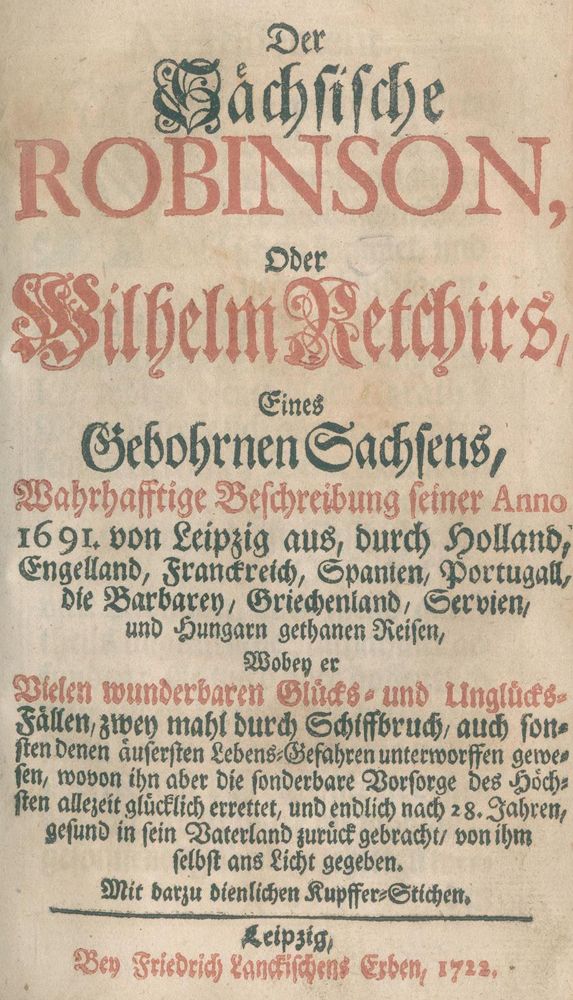 Der
Sächsische
ROBINSON,
Oder
Wilhelm Retchirs,
Eines
Gebohrnen Sachsens,
Wahrhafftige Beschreibung seiner Anno
1691. von Leipzig aus, durch Holland,
Engelland, Franckreich, Spanien, Portugall,
die Barbarey, Griechenland, Servien,
und Hungarn gethanen Reisen,
Wobey er
Vielen wunderbaren Glücks- und Unglücks-
Fällen, zwey mahl durch Schiffbruch, auch son-
sten denen äusersten Lebens-Gefahren unterworffen gewe-
sen, wovon ihn aber die sonderbare Vorsorge des Höch-
sten allezeit glücklich errettet, und endlich nach 28. Jahren,
gesund in sein Vaterland zurück gebracht, von ihm
selbst ans Licht gegeben.
Mit darzu dienlichen Kupffer-Stichen.
Leipzig,
Bey Friedrich Lanckischens Erben, 1722.